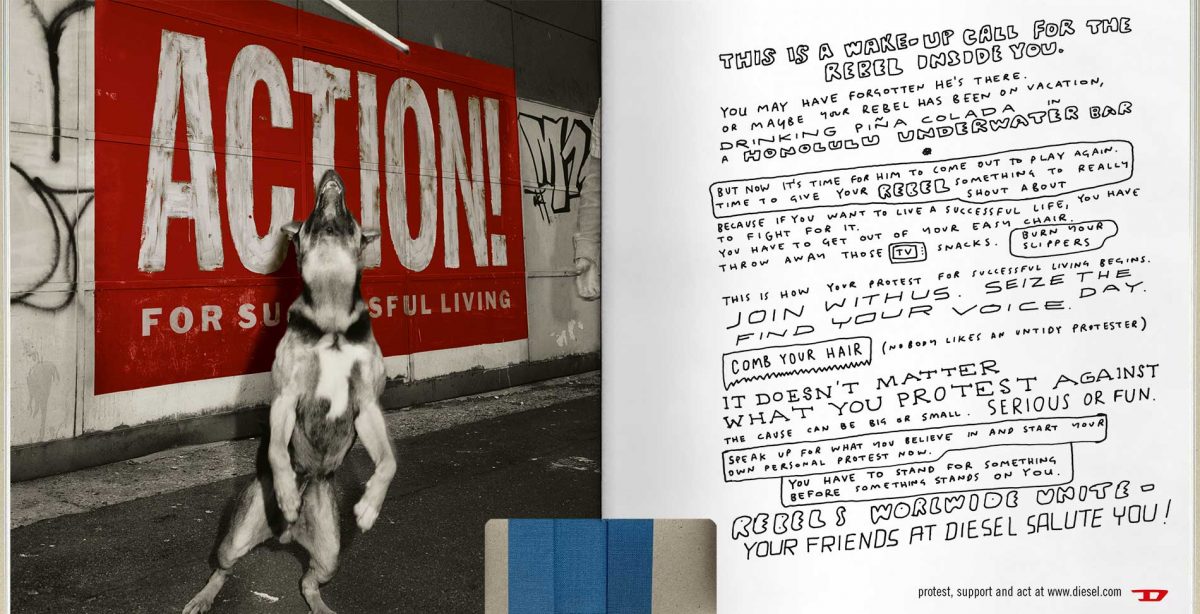 ACTION!
FOR SU SFUL LIVING
THIS IS A WAKE-UP CALL FOR THE
REBEL INSIDE YOU.
YOU MAY HAVE FORGOTTEN HE'S THERE.
OR MAYBE YOUR REBEL HAS BEEN ON VACATION,
DRINKING PIÑA COLADA IN
A HONOLULU UNDERWATER BAR
BUT NOW IT'S TIME FOR HIM TO COME OUT TO PLAY AGAIN.
TIME TO GIVE YOUR REBEL SOMETHING TO REALLY
SHOUT ABOUT
BECAUSE IF YOU WANT TO LIVE A SUCCESSFUL LIFE, YOU HAVE
TO FIGHT FOR IT.
YOU HAVE TO GET OUT OF YOUR EASY CHAIR.
THROW AWAY THOSE TV SNACKS. BURN YOUR
SLIPPERS
THIS IS HOW YOUR PROTEST FOR SUCCESSFUL LIVING BEGINS.
JOIN WITH US. SEIZE THE
FIND YOUR VOICE. DAY.
COMB YOUR HAIR (NOBODY LIKES AN UNTIDY PROTESTER)
IT DOESN'T MATTER
WHAT YOU PROTEST AGAINST
THE CAUSE CAN BE BIG OR SMALL. SERIOUS OR FUN.
SPEAK UP FOR WHAT YOU BELIEVE IN AND START YOUR
OWN PERSONAL PROTEST NOW.
YOU HAVE TO STAND FOR SOMETHING
BEFORE SOMETHING STANDS ON YOU.
REBELS WORLWIDE UNITE -
YOUR FRIENDS AT DIESEL SALUTE YOU!
protest, support and act at www.diesel.com D